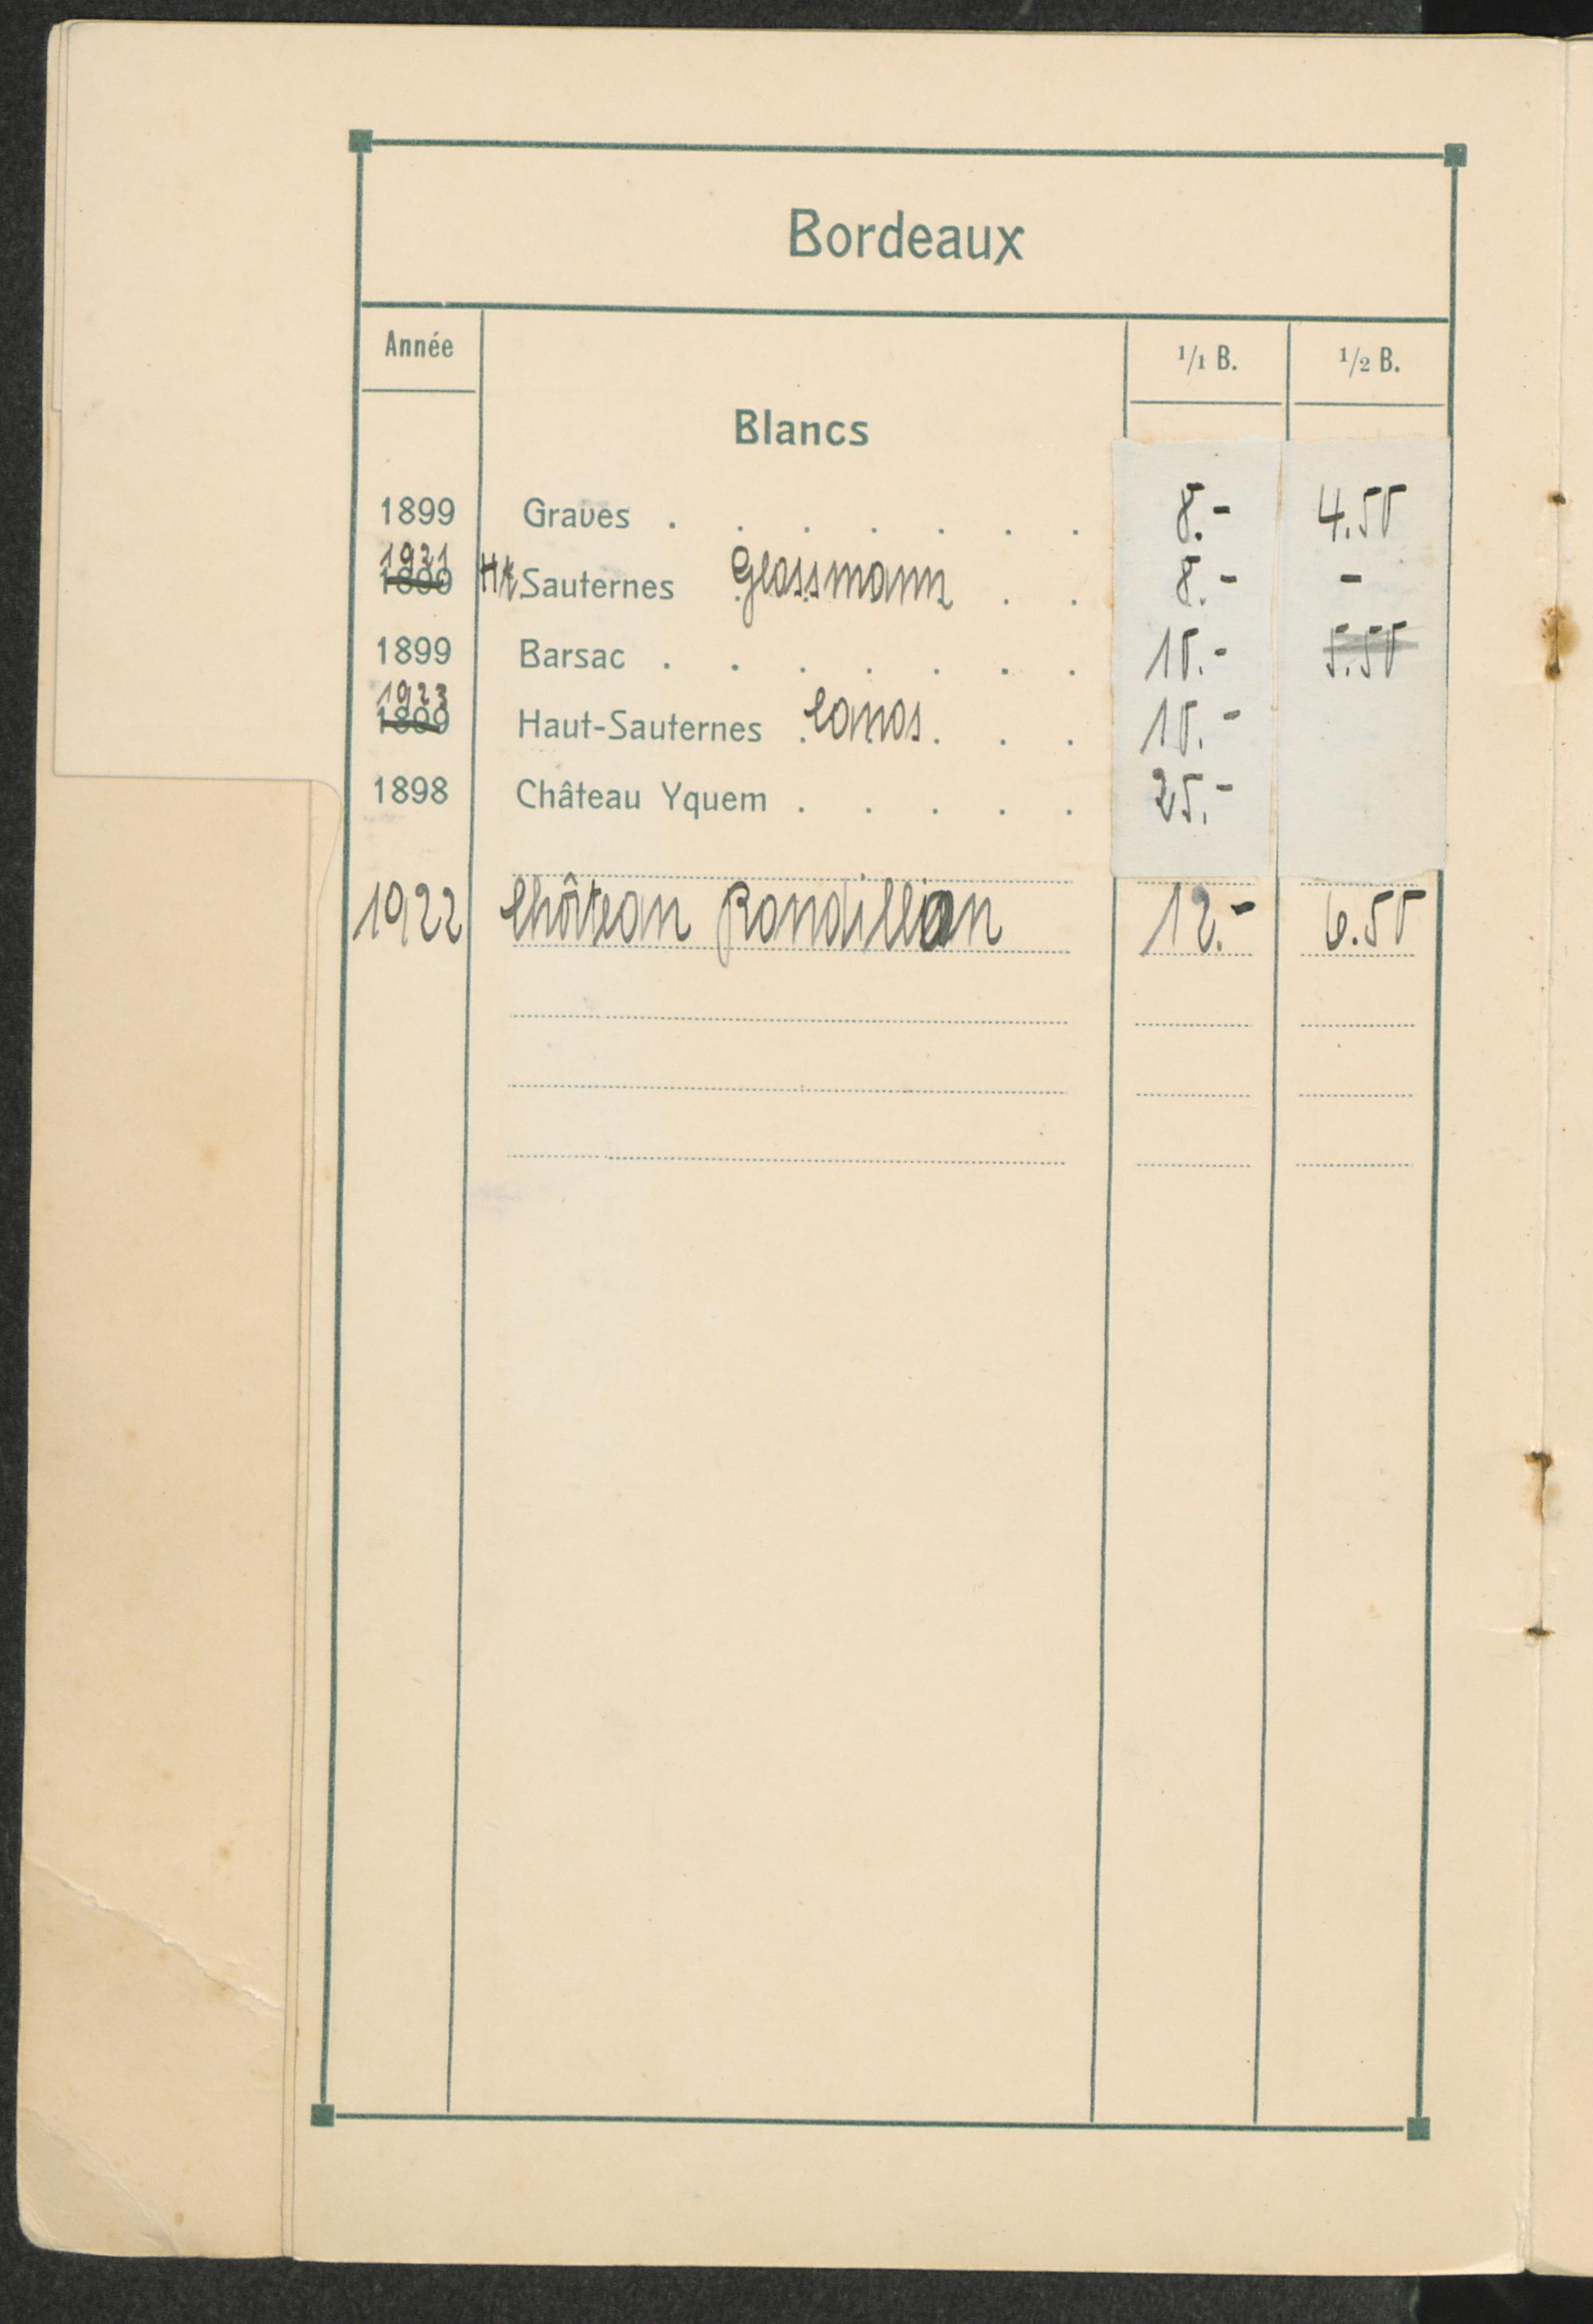 Bordeaux
Année 1/1 B. 1/2 B.
Blancs
1899 Graves . . . . . . . 8.- 4.50
1921
1899 Ht Sauternes Glassmann . . 8.- -
1899 Barsac . . . . . . . 10.- 5.50
1923
1899 Haut-Sauternes . . . . 10.-
1898 Château Yquem . . . . . 25.-
1922 Château Rondillon 12.- 6.50